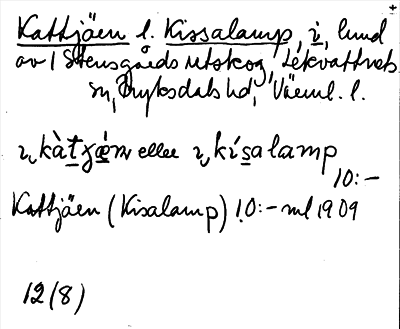 Kattjäen l. Kissalamp, i, lund
av 1 Stensgårds utskog, Lekvattnets
sn, Fryksdals hd, Värml. l.
ı kàtjǽn eller ı kísalamp
10:-
Kattjäen (Kisalamp) 10:- ml 1909
12(8)